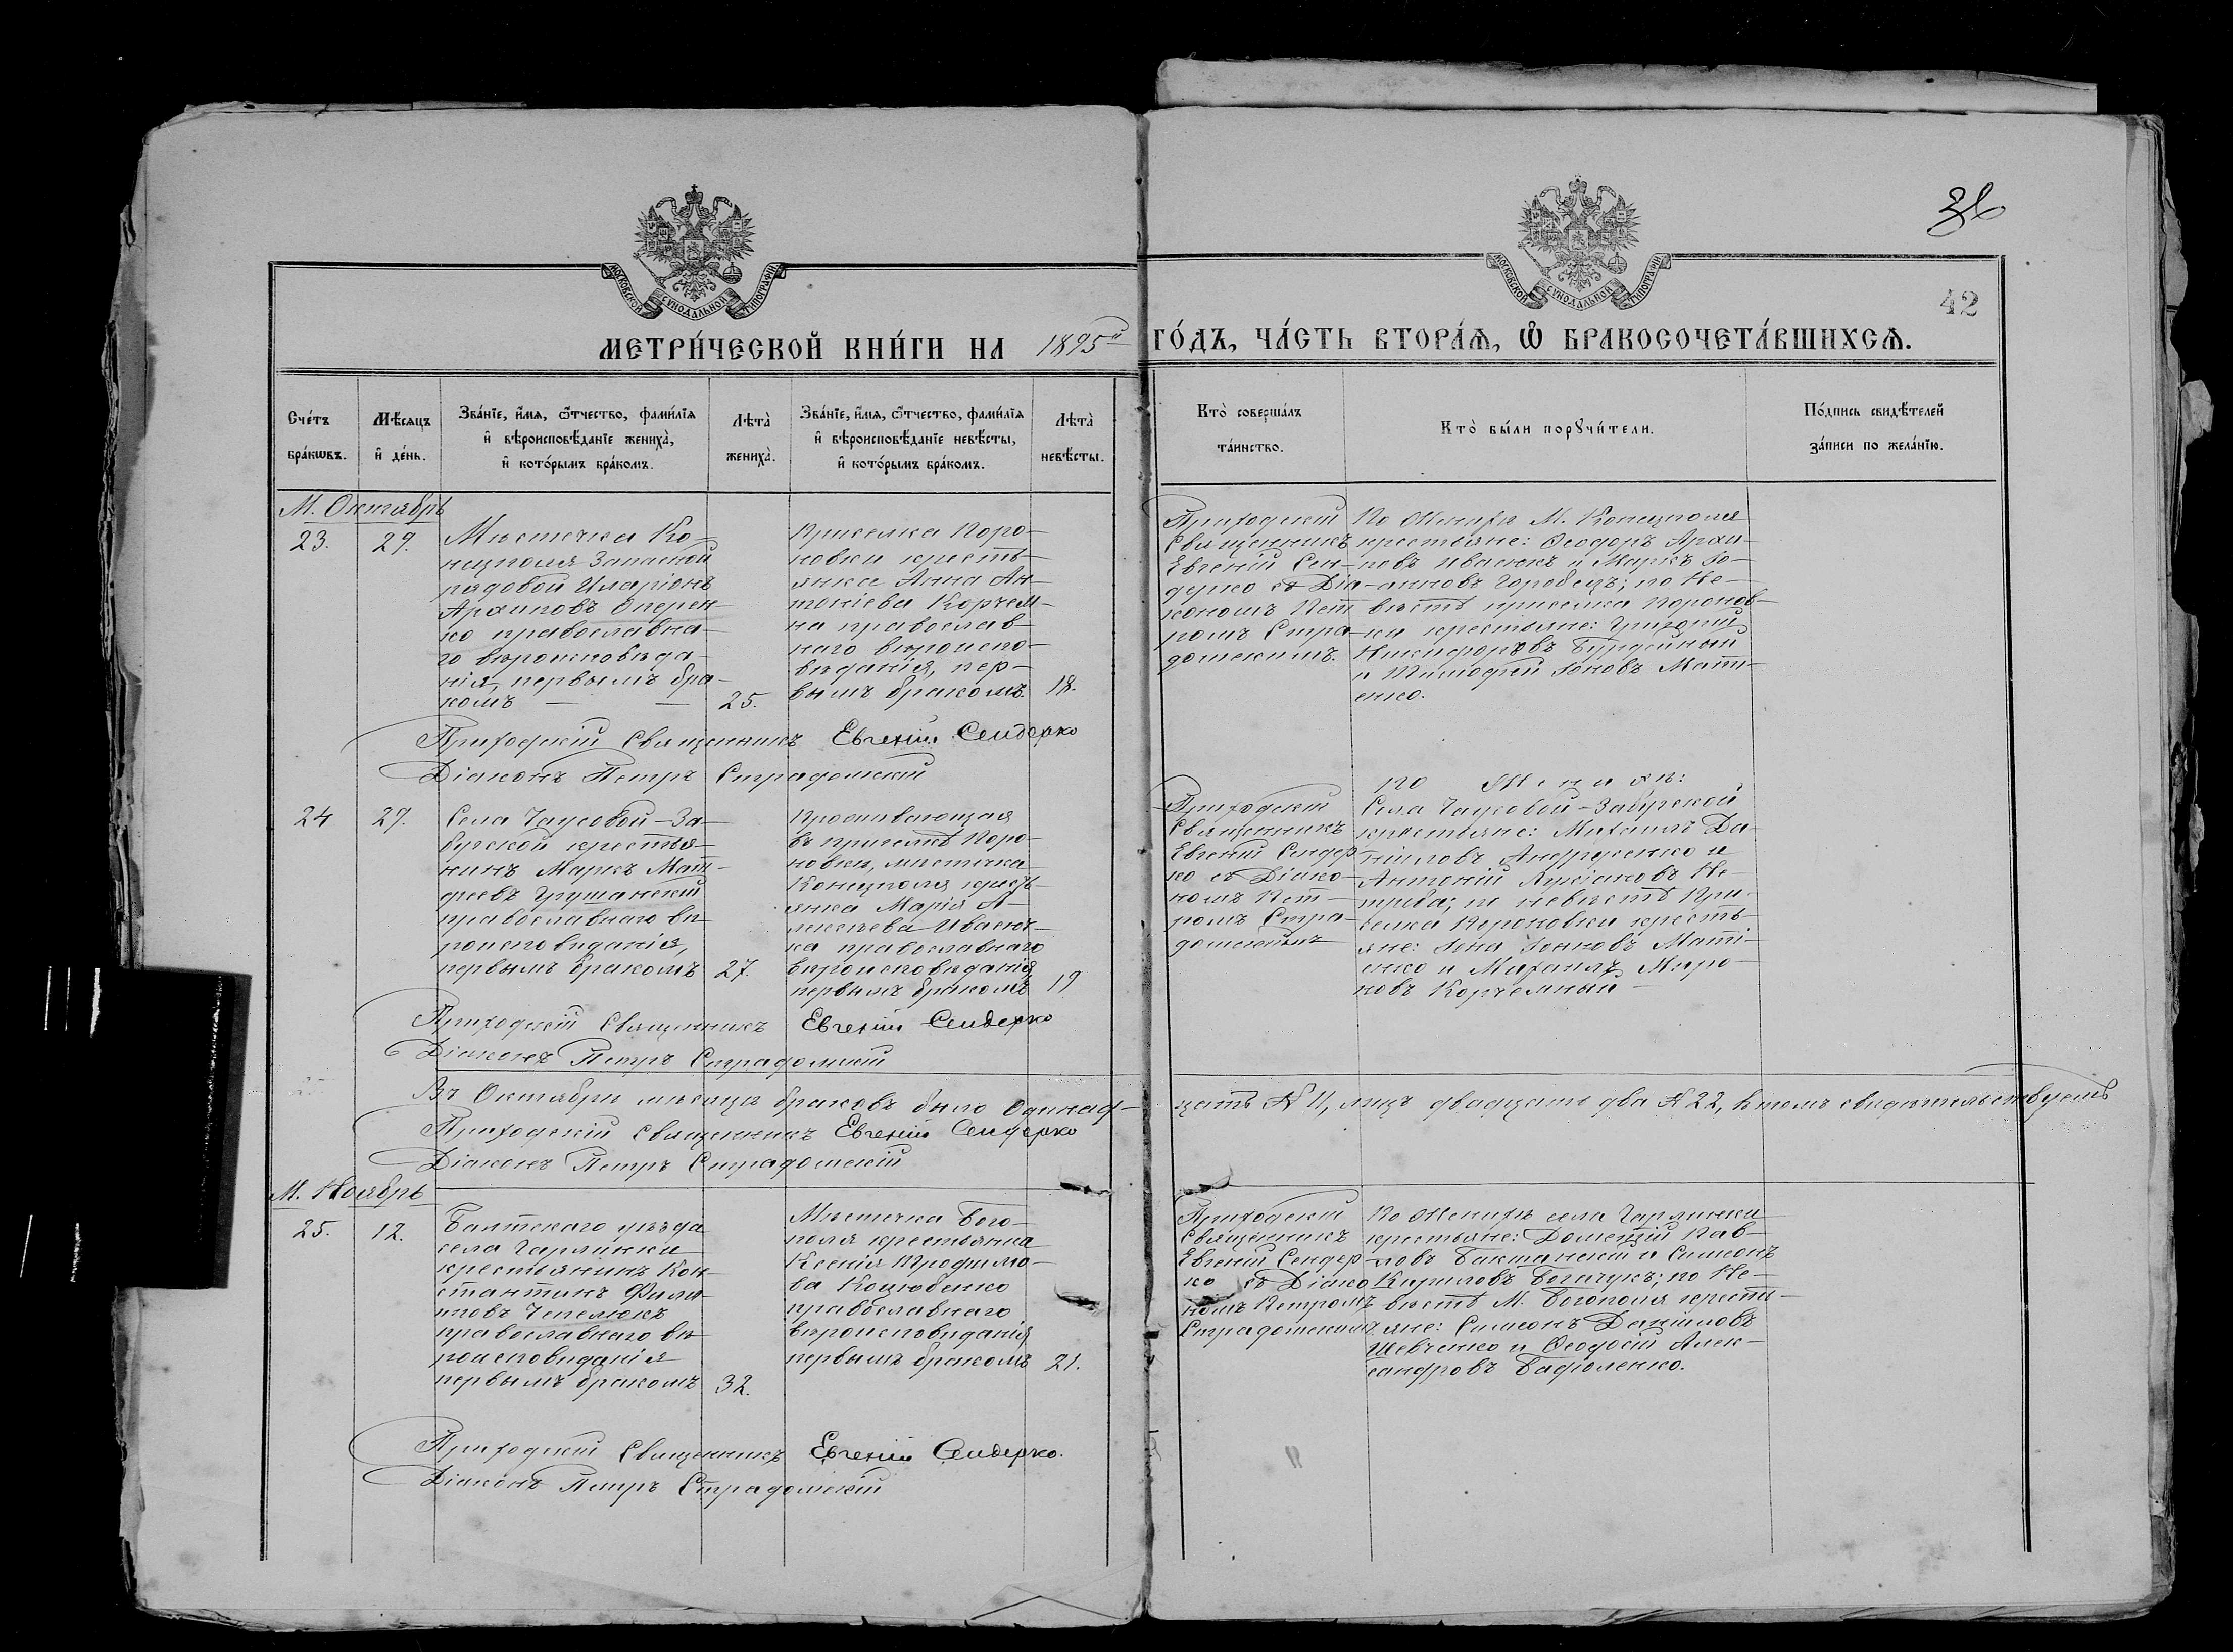 36
42
МОСКОВСКОЙ СѴНОДАЛЬНОЙ ТИПОГРАФІИ
МОСКОВСКОЙ СѴНОДАЛЬНОЙ ТИПОГРАФІИ
МЕТРИ́ЧЕСКОЙ КНИ́ГИ НА 1895й ГО́ДЪ, ЧА́СТЬ ВТОРА́Ѧ, Ѽ БРАКОСОЧЕТА́ВШИХСѦ.
Сче́тъ бра́кѡвъ.
Мѣ́сѧцъ и҆ де́нь.
Зва́нїе, и҆́мѧ, ѻ҆́тчество, фами́лїѧ
и҆ вѣроисповѣ́данїе жениха̀,
и҆ кото́рымъ бра́комъ.
Лѣта̀ жениха̀.
Зва́нїе, и҆́мѧ, ѻ҆́тчество, фами́лїѧ
и҆ вѣроисповѣ́данїе невѣ́сты,
и҆ кото́рымъ бра́комъ.
Лѣта̀ невѣ́сты.
Кто̀ соверша́лъ та́инство.
Кто̀ бы́ли порꙋчи́тели.
По́дпись свидѣ́телей за́писи по жела́нїю.
М. Октябрь
23.
29.
Мѣстечка Ко-
нецполя Запасной
рядовой Иларіонъ
Архиповъ Оперен-
ко православна-
го вѣроисповѣда-
нія, первымъ бра-
комъ
25.
Приселка Поро-
новки кресть-
янка Анна Ан-
тоніева Корчем-
на православ-
наго вѣроиспо-
вѣданія, пер-
вымъ бракомъ
18.
Приходскій
Священникъ
Евгеній Сен-
дерко съ Діа-
кономъ Пет
ромъ Стра-
домскимъ.
По Женихѣ М. Конецполя
крестьяне: Ѳеодоръ Архи-
повъ Иванюк и Маркъ Іо-
анновъ Горобецъ; по Не-
вѣстѣ приселка Поронов-
ки крестьяне: Григорій
Никифоровъ Бурдейный
и Тимофей Іоновъ Мати-
енко.
Приходскій Священникъ Евгеній Сендерко
Діаконъ Петръ Страдомскій
24
29.
Села Чаусовой-За-
бугской крестья-
нинъ Маркъ Мат-
феевъ Грушанскій
православнаго вѣ
роисповѣданія,
первымъ бракомъ
27.
Проживающая
въ приселкѣ Поро-
новки, мѣстечка
Конецполя кресть-
янка Марія А-
лексѣева Иванюк-
ка православнаго
вѣроисповѣданія
первымъ бракомъ
19
Приходскій
Священникъ
Евгеній Сендер
ко съ Діако-
номъ Пет-
ромъ Стра-
домскимъ
по Женихѣ:
Села Чаусовой-Забугской
крестьяне: Михаилъ Да-
ніиловъ Андрусенко и
Антоній Лукіановъ Не-
трива; по невѣстѣ При-
селка Пороновки кресть-
яне: Іона Іонновъ Маті-
енко и Михаилъ Миро-
новъ Корчемный
Приходскій Священникъ Евгеній Сендерко
Діаконъ Петръ Страдомскій
Въ Октябрѣ мѣсяцѣ браковъ было одинад-
цать № 11, лицъ двадцать два № 22, въ томъ свидѣтельствуемъ
Приходскій Священникъ Евгеній Сендерко
Діаконъ Петръ Страдомскій
М. Ноябрь
25.
12.
Балтскаго уѣзда
села Чарлинки
крестьянинъ Кон-
стантинъ Фили
повъ Чепелюкъ
православнаго вѣ
роисповѣданія
первымъ бракомъ
32.
Мѣстечка Бого-
поля крестьянка
Ксенія Трофимо-
ва Коцюбенко
православнаго
вѣроисповѣданія
первымъ бракомъ
21.
Приходскій
Священникъ
Евгеній Сендер-
ко съ Діако
номъ Петромъ
Страдомскимъ
По Женихѣ села Чарлинки
крестьяне: Дометій Пав-
ловъ Бактанскій и Симеонъ
Кириловъ Богачукъ; по Не-
вѣстѣ М. Богополя кресть-
яне: Симеонъ Даніиловъ
Шевченко и Ѳеодосій Алек-
сандровъ Бадюленко.
Приходскій Священникъ Евгеній Сендерко.
Діаконъ Петръ Страдомскій